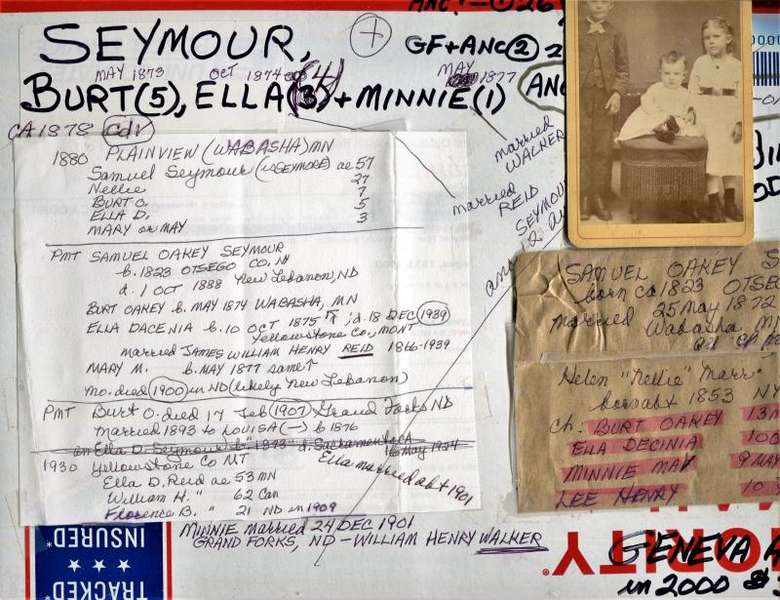 SEYMOUR,
BURT(5), ELLA(3)+MINNIE(1)
MAY 1873
OCT 1874
(4)
MAY 1877
GF+ANC② 2
ANC
CA 1878 cdv
married
WALKER
married
REID
SEYMOUR
1880 PLAINVIEW (WABASHA) MN
Samuel Seymour ae 57
Nellie 27
BURT O. 7
ELLA D. 5
MARY or MAY 3
PMT SAMUEL OAKEY SEYMOUR
b. 1823 OTSEGO CO. NY
d. 1 OCT 1888 New Lebanon, ND
BURT OAKEY b. MAY 1874 WABASHA, MN
ELLA DACENIA b. 10 OCT 1875 ; d. 18 DEC 1939
Yellowstone Co., MONT
married JAMES WILLIAM HENRY REID 1866-1939
MARY M. b. MAY 1877 same↑
Mo. died 1900 in ND (likely New Lebanon)
PMT Burt O. died 17 Feb 1907 Grand Forks ND
Married 1893 to LOUISA (—) b 1876
Ella D. Seymour b. 1873 d. Sacramento CA
16 May 1954
1930 Yellowstone Co MT
Ella married abt 1901
Ella D. Reid ae 53 MN
William H. " 62 Can
Florence B. " 21 ND in 1909
MINNIE married 24 DEC 1901
GRAND FORKS, ND - WILLIAM HENRY WALKER
SAMUEL OAKEY S
born ca 1823 OTSEG
married 25 May 1872
Wabasha, M
Helen "Nellie" Marr
born abt 1853 NY
ch: BURT OAKEY 131
ELLA DECINIA 100
MINNIE MAY 9 MAY
LEE HENRY 10
TRACKED
INSURED
GENEVA A
in 2000 $